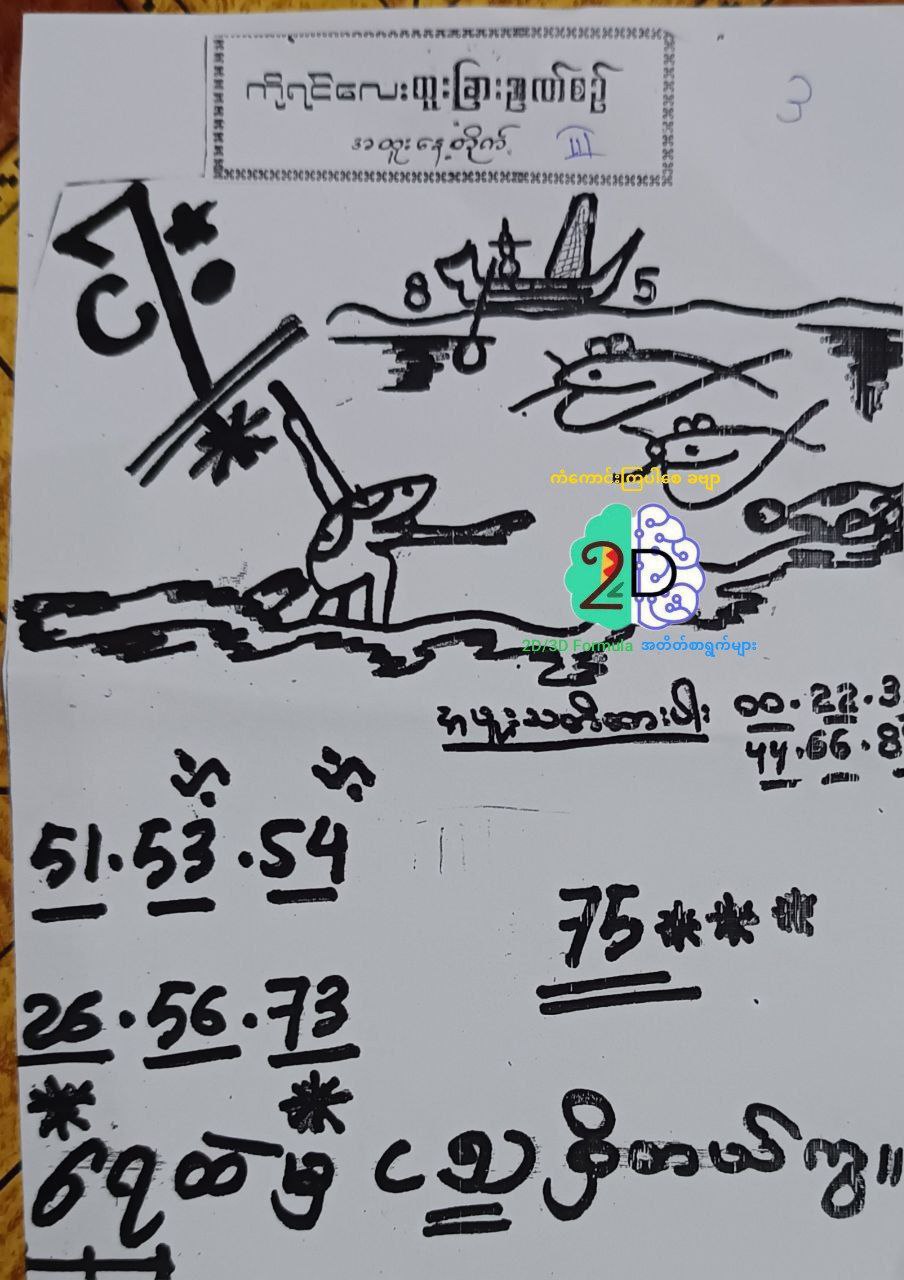 ကိုရင်လေးထူးခြားဉာဏ်စဉ်
အထူးနေ့တိုက် III
3
8 5
ကံကောင်းကြပါစေ ခဗျာ
2D
2D/3D Formula အတိတ်စာရွက်များ
အပူးသတိထားပါ။ 00.22.3
44.66.8
51.53.54
75***
26.56.73
ရေထဲမှာ ငါး ရှိတယ်ကွ။